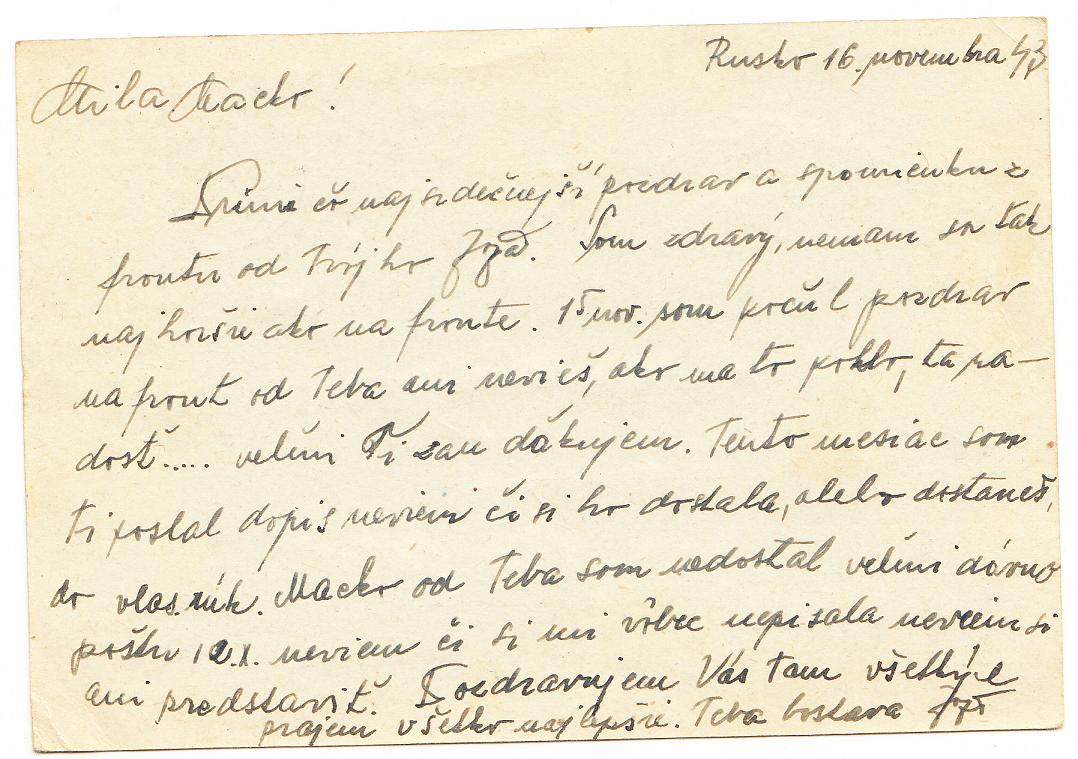 Rusko 16. novembra 43
Milá Macko!
Príimi čo najsrdečnejší pozdrav a spomienku z
frontu od Tvójho Joža. Som zdravý, nemam sa tak
najhoršie ako na fronte. 15 nov. som počul pozdrav
na front od Teba ani nevieš, ako ma to poklo, ta ra-
dosť..... velmi Ti zan dăkujem. Tento mesiac som
Ti poslal dopis neviem či si ho dostala, alebo dostaneš,
do vlas. ruk. Macko od Teba som nedostal velmi dávno
poštu 12.X. neviem či si mi vôbec nepisala neviem si
ani predstaviť. Pozdravujem Vás tam všetkých
prajem všetko najlepšie. Teba bostava